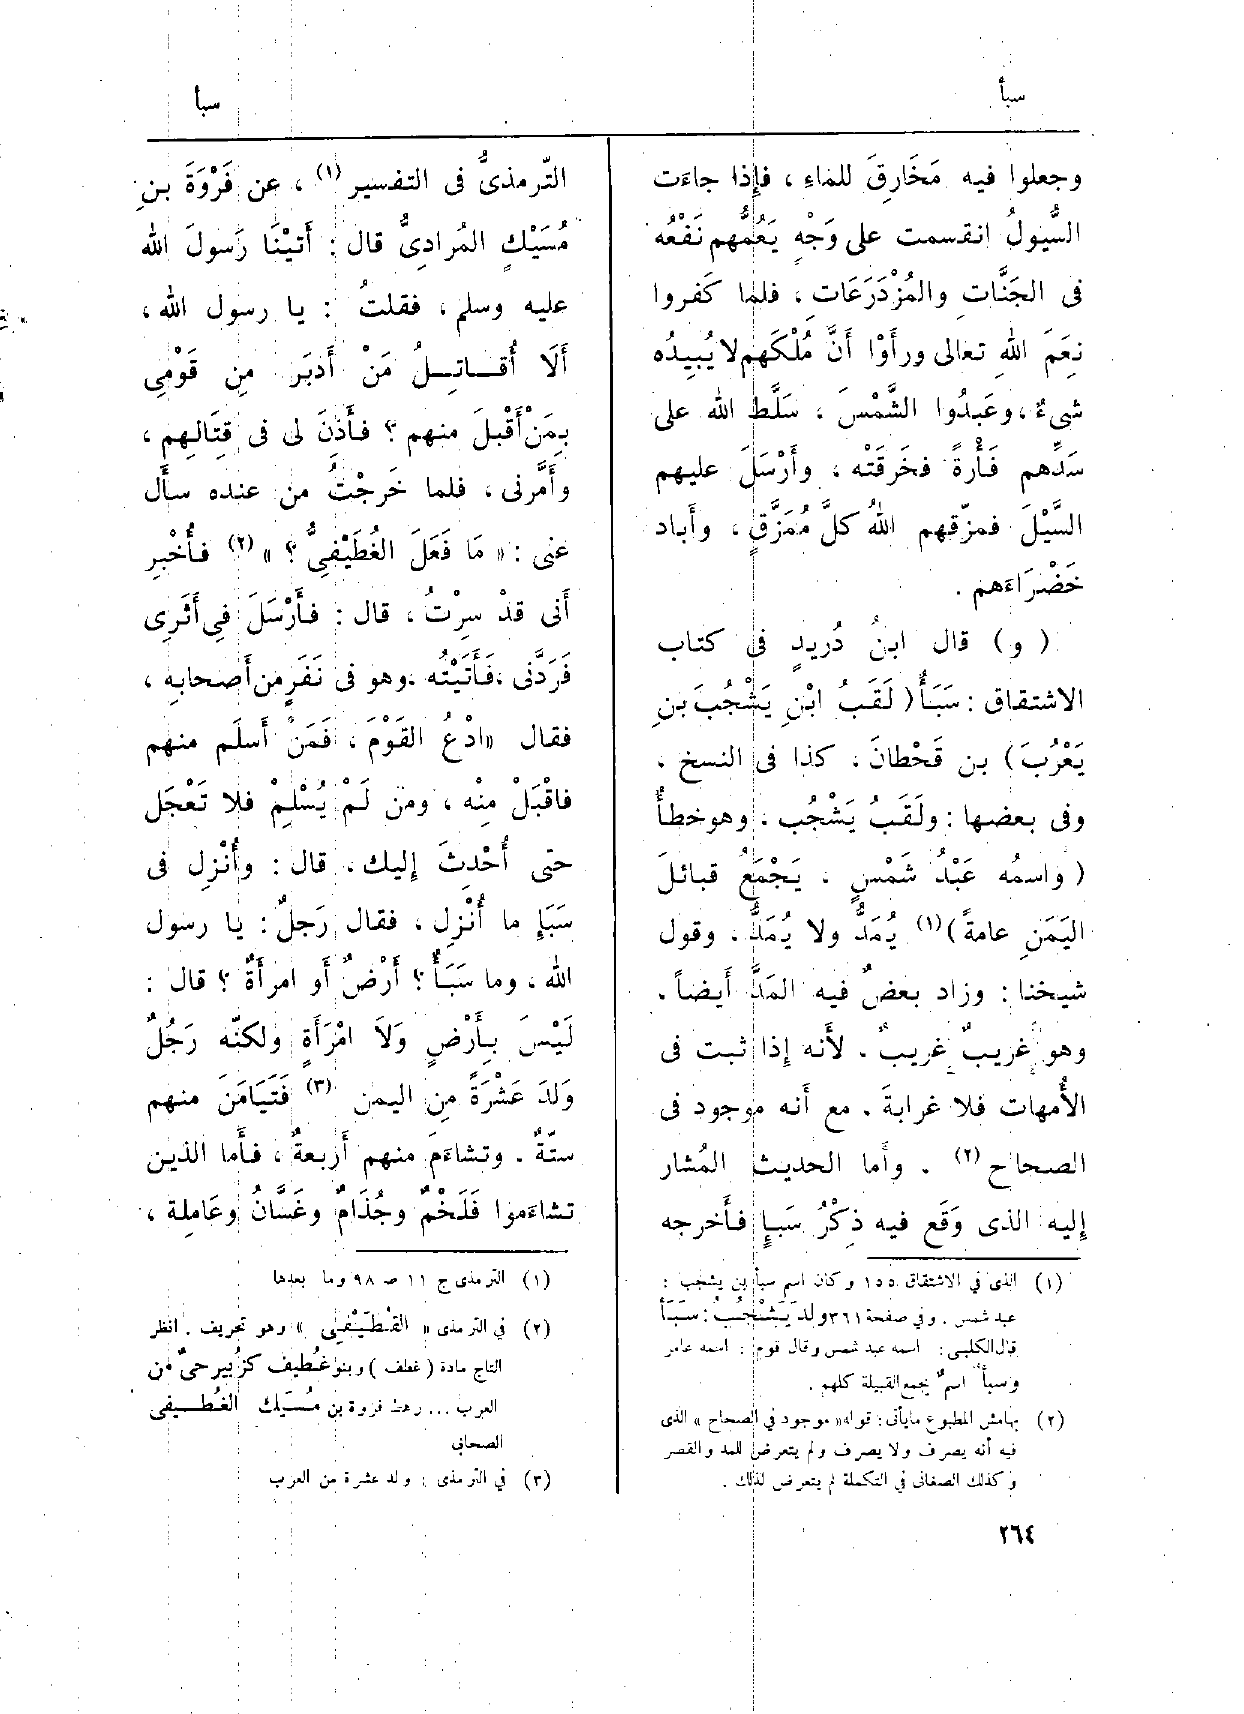 سبأ
سبأ
وجعلوا فيه مَخَارِقَ للماءِ ، فإِذا جاءَت
السُّيولُ انقسمت على وَجْهٍ يَعُمُّهم نَفْعُه
فى الجَنَّاتِ والمُزْدَرَعَاتِ ، فلما كَفروا
نِعَمَ اللهِ تعالى ورأَوْا أَنَّ مُلْكَهم لا يُبِيدُه
شىءٌ ، وعَبدُوا الشَّمْسَ ، سَلَّط الله على
سَدِّهم فَأْرَةً فخَرقَتْه ، وأَرْسَلَ عليهم
السَّيْلَ فمزّقهم اللهُ كلَّ مُمَزَّقٍ ، وأَباد
خَضْرَاءَهم .
( و ) قال ابنُ دُريدٍ فى كتاب
الاشتقاق : سَبَأٌ ( لَقَبُ ابْنِ يَشْجُبَ بنِ
يَعْرُبَ ) بن قَحْطانَ ، كذا فى النسخ ،
وفى بعضها : ولَقَبُ يَشْجُب ، وهو خطأٌ
( واسمُه عَبْدُ شَمْسٍ ، يَجْمَعُ قبائلَ
اليَمَنِ عامةً ) (١) يُمَدُّ ولا يُمَدُّ ، وقول
شيخنا : وزاد بعضٌ فيه المَدَّ أَيضاً ،
وهو غريبٌ غريبٌ ، لأَنه إِذا ثبت فى
الأُمهات فلا غرابةَ ، مع أَنه موجود فى
الصحاح (٢) . وأَما الحديث المُشار
إِليه الذى وَقَع فيه ذِكْرُ سَبإٍ فأَخرجه
(١) الذى في الاشتقاق ١٥٥ وكان اسم سبأ بن يشجب :
عبد شمس . وفي صفحة ٣٦١ ولد يَشْجُبُ : سَبَأَ
قال الكلبى : اسمه عبد شمس وقال قوم : اسمه عامر
وسبأ اسمٌ يجمع القبيلة كلهم .
(٢) بهامش المطبوع مايأتى : قوله « موجود في الصحاح » الذى
فيه أنه يصرف ولا يصرف ولم يتعرض للمد والقصر
وكذلك الصغانى في التكملة لم يتعرض لذلك .
٢٦٤
التِّرمذىُّ فى التفسير (١) ، عن فَرْوَةَ بنِ
مُسَيْكٍ المُرادِىُّ قال : أَتيْنَا رَسولَ الله
عليه وسلم ، فقلتُ : يا رسول الله ،
أَلَا أُقاتِلُ مَنْ أَدبَر مِن قَوْمِى
بِمَنْ أَقْبلَ منهم ؟ فأَذِنَ لى فى قِتَالِهم ،
وأَمَّرنى ، فلما خَرجْتُ من عنده سأَل
عنى : « مَا فَعَلَ الغُطَيْفِىُّ ؟ » (٢) فأُخْبِر
أَنى قدْ سِرْتُ ، قال : فأَرْسَلَ فِى أَثَرِى
فَرَدَّنى ، فَأَتَيْتُه ، وهو فى نَفَرٍ من أَصحابِه ،
فقال « ادْعُ القَوْمَ ، فَمَنْ أَسلَم منهم
فاقْبَلْ مِنْه ، ومَن لَمْ يُسْلِمْ فلا تَعْجَل
حتى أُحْدِثَ إِليك ، قال : وأُنْزِل فى
سَبَإٍ ما أُنْزِل ، فقال رَجلٌ : يا رسول
الله ، وما سَبَأٌ ؟ أَرْضٌ أَو امرأَةٌ ؟ قال :
لَيْسَ بِأَرْضٍ وَلَا امْرَأَةٍ ولكنّه رَجُلٌ
وَلَدَ عَشْرَةً مِن اليمن (٣) فَتَيَامَنَ منهم
ستّةٌ ، وتشاءَمَ منهم أَربعةٌ ، فأَما الذين
تشاءَموا فَلَخْمٌ وجُذَامٌ وغَسَّانُ وعَامِلة ،
(١) الترمذى ج ١١ ص ٩٨ وما بعدها
(٢) في الترمذى « القُطَيْفِى » وهو تحريف . انظر
التاج مادة ( غطف ) وبنو غُطيف كزُبير حىٌّ من
العرب ... رهط فروة بن مُسَيك الغُطيفى
الصحابى
(٣) في الترمذى : ولد عشرة من العرب